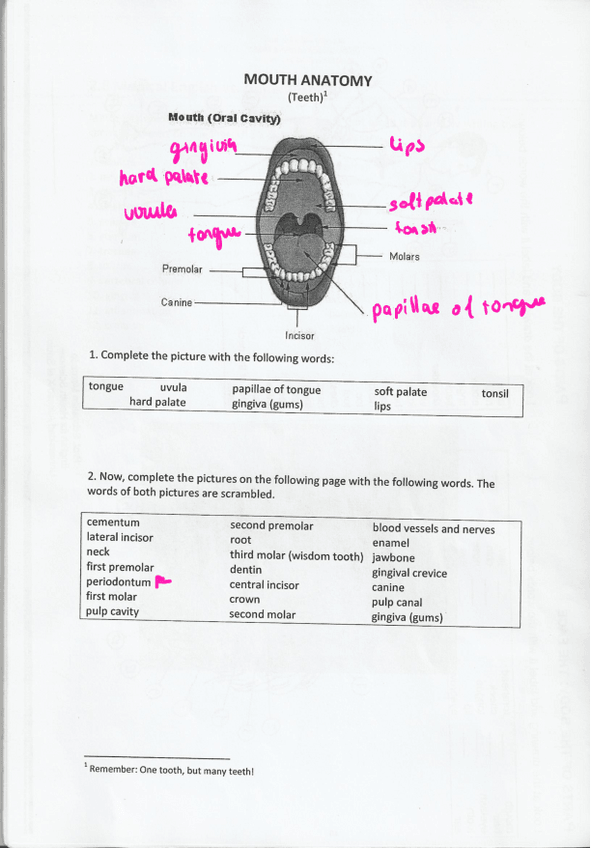 MOUTH ANATOMY
(Teeth)¹
Mouth (Oral Cavity)
gingivia
lips
hard palate
soft palate
uvula
tongue
Molars
Premolar
Canine
papillae of tongue
Incisor
1. Complete the picture with the following words:
tongue uvula papillae of tongue soft palate tonsil
hard palate gingiva (gums) lips
2. Now, complete the pictures on the following page with the following words. The
words of both pictures are scrambled.
cementum second premolar blood vessels and nerves
lateral incisor root enamel
neck third molar (wisdom tooth) jawbone
first premolar dentin gingival crevice
periodontum central incisor canine
first molar crown pulp canal
pulp cavity second molar gingiva (gums)
¹ Remember: One tooth, but many teeth!